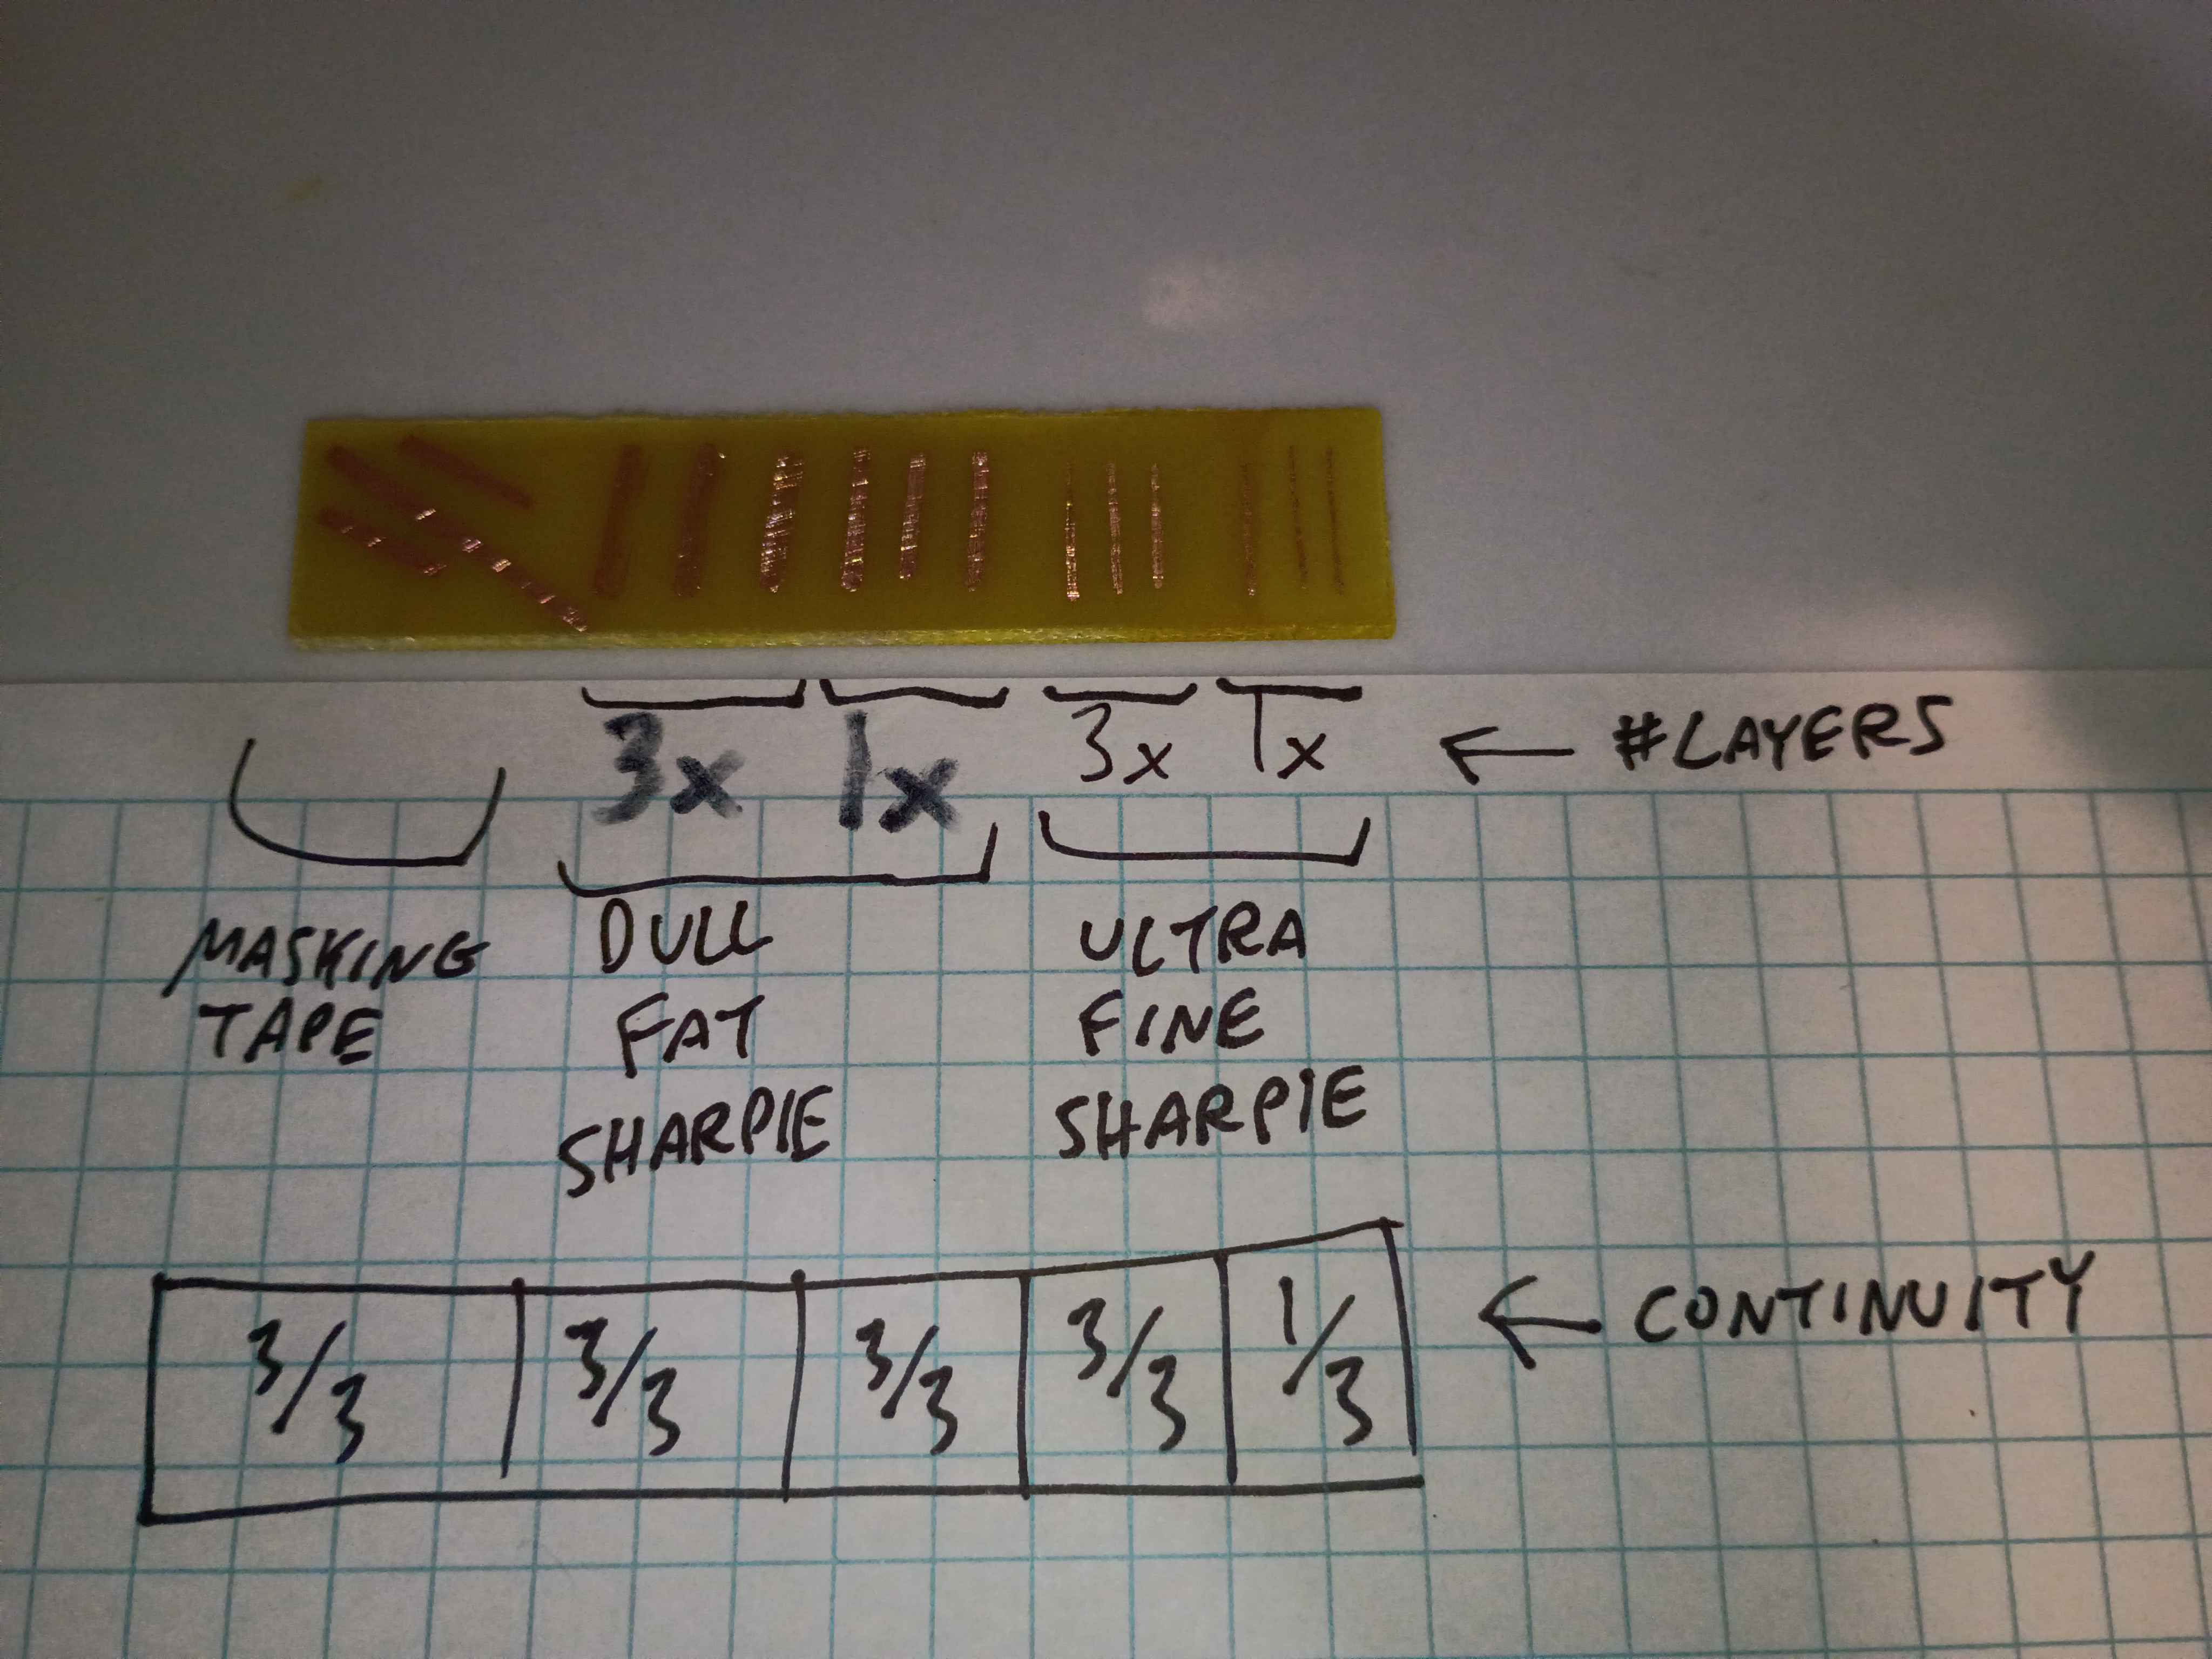 3x 1x 3x 1x ← #LAYERS
MASKING
TAPE
DULL
FAT
SHARPIE
ULTRA
FINE
SHARPIE
3/3 3/3 3/3 3/3 1/3 ← CONTINUITY